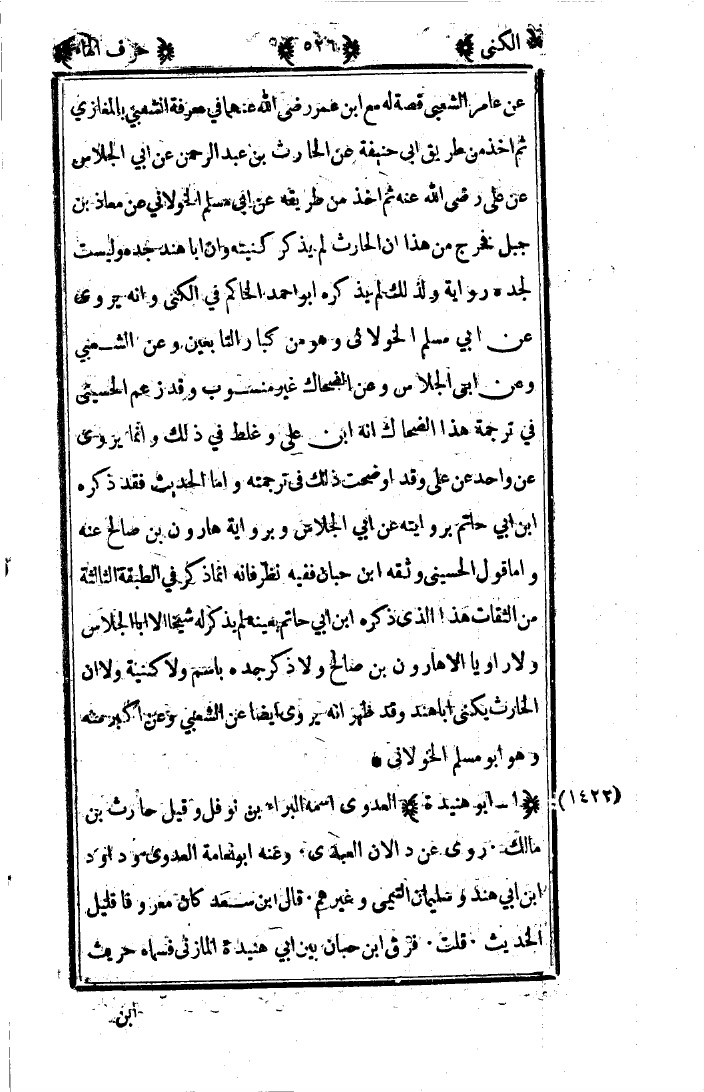 ﴿ الكنى ﴾ ﴿ ٥٢٦ ﴾ ﴿ حرف الهاء ﴾
عن عامر الشعبى قصة له مع ابن عمر رضى الله عنهما في معرفة الشعبي بالمغازي
ثم اخذ من طريق ابى حنيفة عن الحارث بن عبد الرحمن عن ابي الجلاس
عن على رضى الله عنه ثم اخذ من طريقه عن ابي مسلم الخولاني عن معاذ بن
جبل فخرج من هذا ان الحارث لم يذكر كنيته وان ابا هند جده وليست
لجده رواية ولذلك لم يذكره ابو احمد الحاكم في الكنى وانه يروى
عن ابي مسلم الخولانى وهو من كبار التابعين وعن الشعبي
وعن ابى الجلاس وعن الضحاك غير منسوب وقد زعم الحسينى
في ترجمة هذا الضحاك انه ابن على وغلط في ذلك وانما يروى
عن واحد عن على وقد اوضحت ذلك فى ترجمته واما الحديث فقد ذكره
ابن ابي حاتم بروايته عن ابي الجلاس وبرواية هارون بن صالح عنه
واما قول الحسينى وثقه ابن حبان ففيه نظر فانه انما ذكر في الطبقة الثالثة
من الثقات هذا الذى ذكره ابن ابي حاتم بعينه لم يذكر له شيخا الا ابا الجلاس
ولا راويا الا هارون بن صالح ولا ذكر جده باسم ولا كنية ولا ان
الحارث يكنى ابا هند وقد ظهر انه يروى ايضا عن الشعبي وعن اكبر منه
وهو ابو مسلم الخولانى •
(١٤٢٢) ﴿ ا ـ ابو هنيدة ﴾ العدوى اسمه البراء بن نوفل وقيل حارث بن
مالك . روى عن دالان العبدى . وعنه ابو نعامة العدوى وداود
ابن ابي هند وسليمان التيمى وغيرهم . قال ابن سعد كان معروفا قليل
الحديث . قلت . فرق ابن حبان بين ابي هنيدة المازنى فسماه حريث
ابن